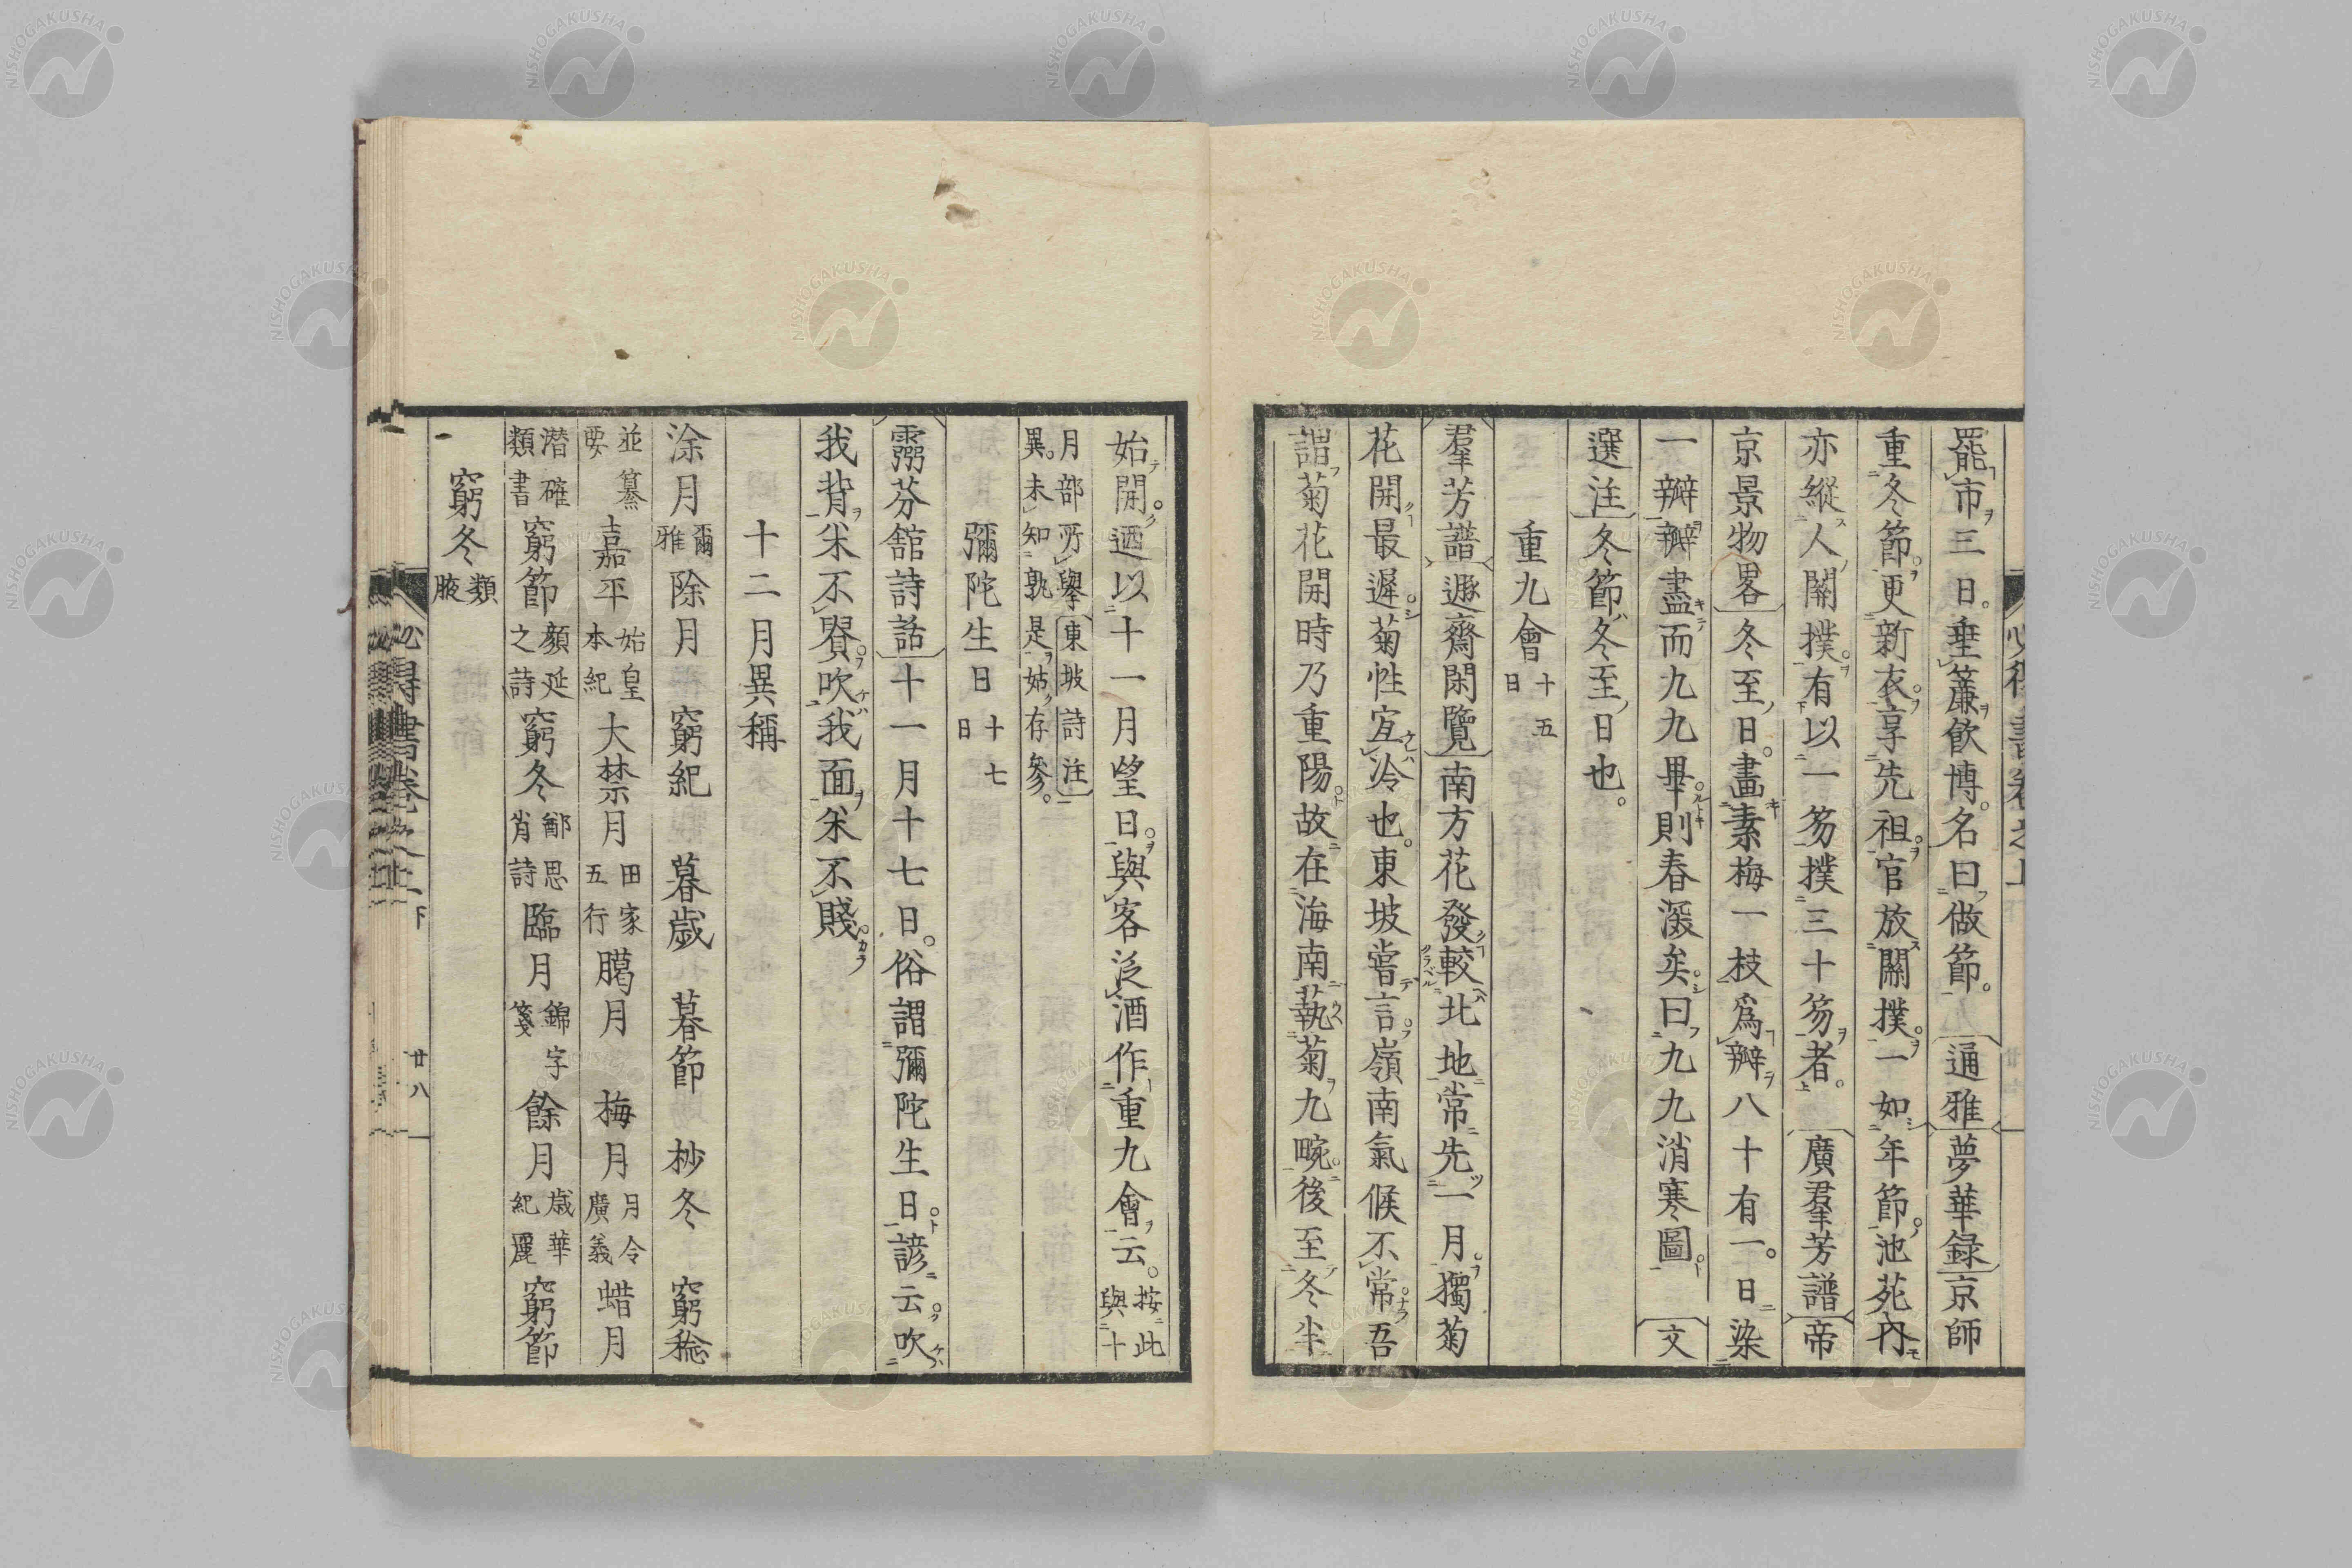 罷市三日。垂簾飲博。名曰做節。通雅 夢華録 京師
重冬節。更新衣。享先祖。官放關撲。一如年節。池苑內
亦縱人關撲。有以一笏撲三十笏者。廣羣芳譜 帝
京景物畧 冬至日。畫素梅一枝爲瓣八十有一。日染
一瓣瓣盡而九九畢。則春深矣。曰九九消寒圖。文
選注 冬節冬至日也。
重九會 十五日
羣芳譜 遯齋閑覽 南方花發較北地常先一月。獨菊
花開最遲。菊性宜冷也。東坡嘗言。嶺南氣候不常。吾
謂菊花開時乃重陽。故在海南執菊九畹。後至冬半
始開。迺以十一月望日。與客泛酒作重九會云。按此與十
月部所擧東坡詩注異。未知孰是。姑存參。
彌陀生日 十七日
霛芬舘詩話 十一月十七日。俗謂彌陀生日。諺云。吹
我背米不貴。吹我面米不賤。
十二月異稱
涂月 爾雅 除月 窮紀 暮歲 暮節 杪冬 窮稔
並纂要 嘉平 始皇本紀 大禁月 田家五行 臈月 梅月 月令廣義 蜡月
潜確類書 窮節 顏延之詩 窮冬 鄒思肖詩 臨月 錦字箋 餘月 歳華紀麗 窮節
窮冬 類腋
必得書卷之上 下 廿八